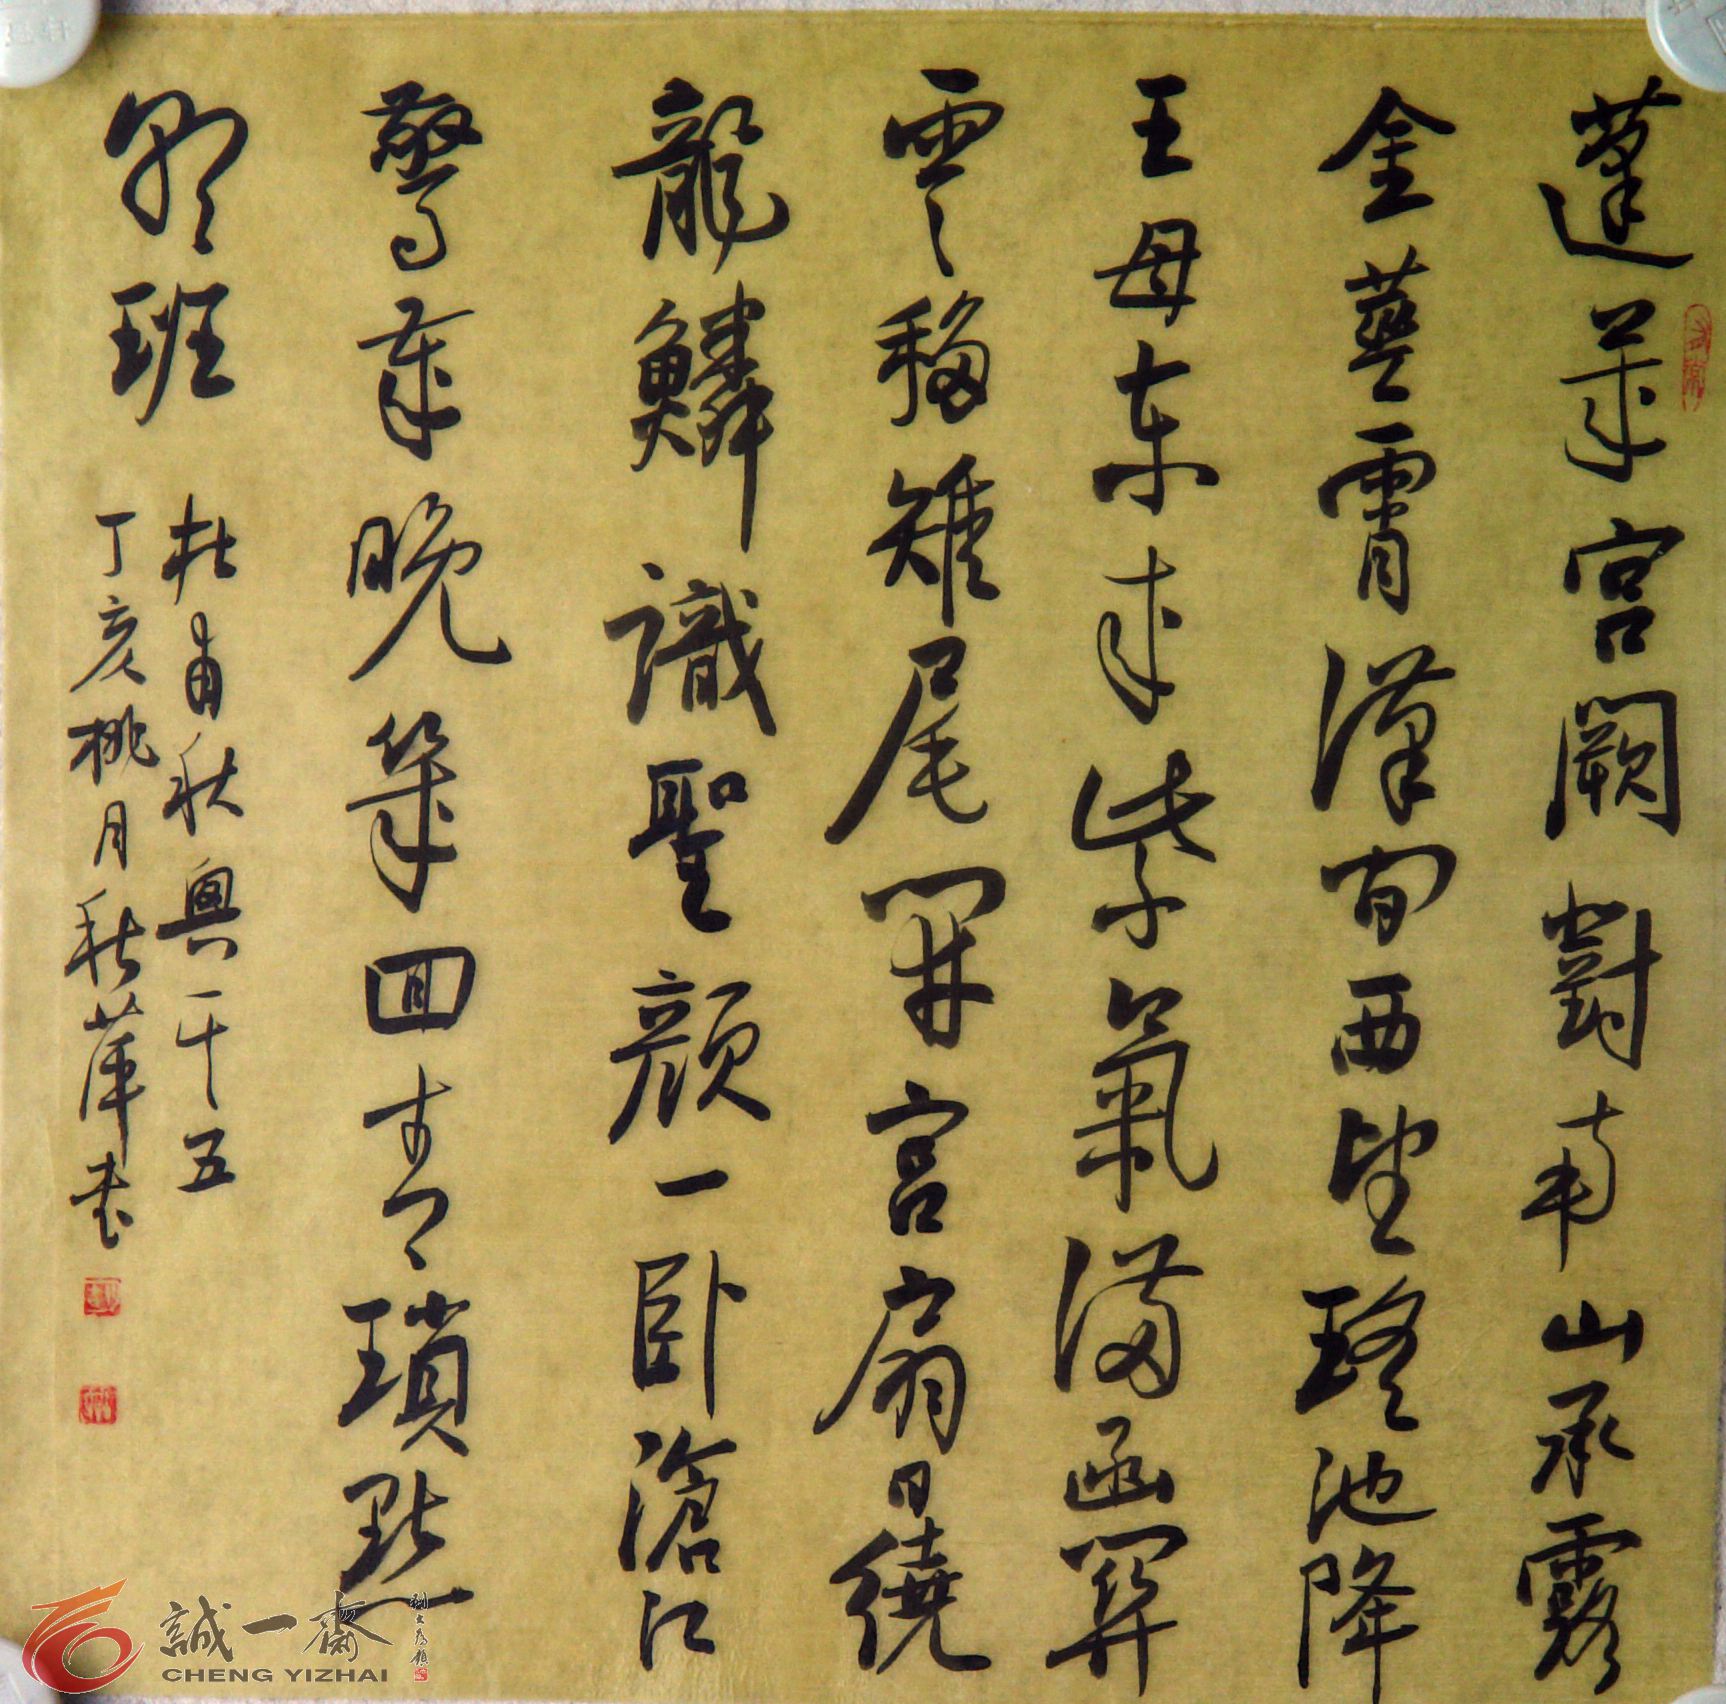 蓬萊宮闕對南山承露
金莖霄漢間西望瑤池降
王母東来紫氣滿函関
雲移雉尾開宮扇日繞
龍鱗識聖顏一卧滄江
驚歲晚幾回青瑣點
朝班
杜甫秋興五
丁亥桃月秋書
誠一齋
CHENG YIZHAI